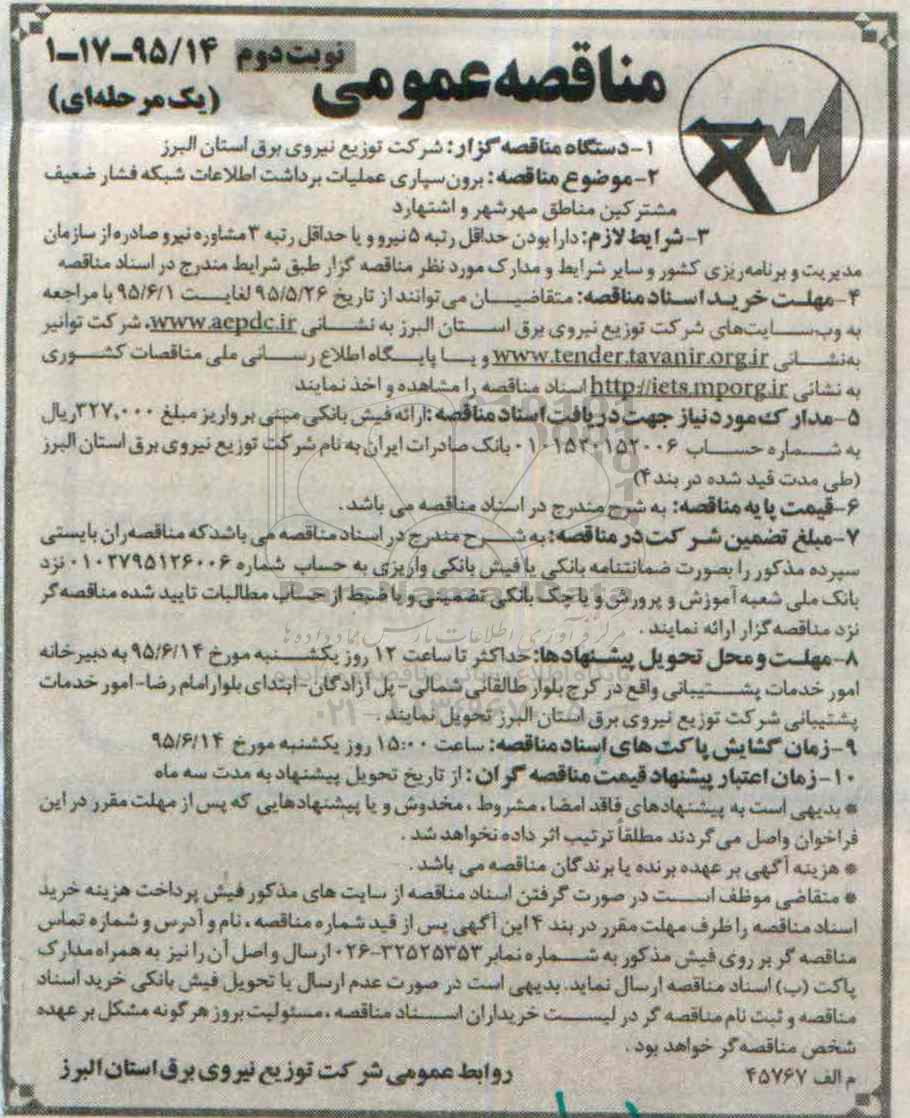 مناقصه عمومی نوبت دوم ۱-۱۷-۹۵/۱۴
(یک مرحله‌ای)
۱-دستگاه مناقصه گزار: شرکت توزیع نیروی برق استان البرز
۲-موضوع مناقصه: برون سپاری عملیات برداشت اطلاعات شبکه فشار ضعیف
مشترکین مناطق مهرشهر و اشتهارد
۳-شرایط لازم: دارا بودن حداقل رتبه ۵ نیرو و یا حداقل رتبه ۳ مشاوره نیرو صادره از سازمان
مدیریت و برنامه‌ریزی کشور و سایر شرایط و مدارک مورد نظر مناقصه گزار طبق شرایط مندرج در اسناد مناقصه
۴-مهلت خرید اسناد مناقصه: متقاضیان می‌توانند از تاریخ ۹۵/۵/۲۶ لغایت ۹۵/۶/۱ با مراجعه
به وب‌سایت‌های شرکت توزیع نیروی برق استان البرز به نشانی www.aepdc.ir، شرکت توانیر
به‌نشانی www.tender.tavanir.org.ir و یا پایگاه اطلاع رسانی ملی مناقصات کشوری
به نشانی http://iets.mporg.ir اسناد مناقصه را مشاهده و اخذ نمایند
۵-مدارک مورد نیاز جهت دریافت اسناد مناقصه: ارائه فیش بانکی مبنی بر واریز مبلغ ۳۲۷,۰۰۰ریال
به شماره حساب ۰۱۰۱۵۲۰۱۵۲۰۰۶ بانک صادرات ایران به نام شرکت توزیع نیروی برق استان البرز
(طی مدت قید شده در بند ۴)
۶-قیمت پایه مناقصه: به شرح مندرج در اسناد مناقصه می باشد.
۷-مبلغ تضمین شرکت در مناقصه: به شرح مندرج در اسناد مناقصه می باشد که مناقصه‌ران بایستی
سپرده مذکور را بصورت ضمانتنامه بانکی یا فیش بانکی واریزی به حساب شماره ۰۱۰۲۷۹۵۱۲۶۰۰۶ نزد
بانک ملی شعبه آموزش و پرورش و یا چک بانکی تضمینی و یا ضبط از حساب مطالبات تایید شده مناقصه گر
نزد مناقصه گزار ارائه نمایند.
۸-مهلت و محل تحویل پیشنهادها: حداکثر تا ساعت ۱۲ روز یکشنبه مورخ ۹۵/۶/۱۴ به دبیرخانه
امور خدمات پشتیبانی واقع در کرج بلوار طالقانی شمالی- پل آزادگان- ابتدای بلوار امام رضا- امور خدمات
پشتیبانی شرکت توزیع نیروی برق استان البرز تحویل نمایند.
۹-زمان گشایش پاکت های اسناد مناقصه: ساعت ۱۵:۰۰ روز یکشنبه مورخ ۹۵/۶/۱۴
۱۰-زمان اعتبار پیشنهاد قیمت مناقصه گران: از تاریخ تحویل پیشنهاد به مدت سه ماه
* بدیهی است به پیشنهادهای فاقد امضا، مشروط، مخدوش و یا پیشنهادهایی که پس از مهلت مقرر در این
فراخوان واصل می گردند مطلقاً ترتیب اثر داده نخواهد شد.
* هزینه آگهی بر عهده برنده یا برندگان مناقصه می باشد.
* متقاضی موظف است در صورت گرفتن اسناد مناقصه از سایت های مذکور فیش پرداخت هزینه خرید
اسناد مناقصه را ظرف مهلت مقرر در بند ۴ این آگهی پس از قید شماره مناقصه، نام و آدرس و شماره تماس
مناقصه گر بر روی فیش مذکور به شماره نمابر ۳۲۵۲۵۳۵۳-۰۲۶ ارسال و اصل آن را نیز به همراه مدارک
پاکت (ب) اسناد مناقصه ارسال نماید. بدیهی است در صورت عدم ارسال یا تحویل فیش بانکی خرید اسناد
مناقصه و ثبت نام مناقصه گر در لیست خریداران اسناد مناقصه، مسئولیت بروز هرگونه مشکل بر عهده
شخص مناقصه گر خواهد بود.
م الف ۴۵۷۶۷ روابط عمومی شرکت توزیع نیروی برق استان البرز